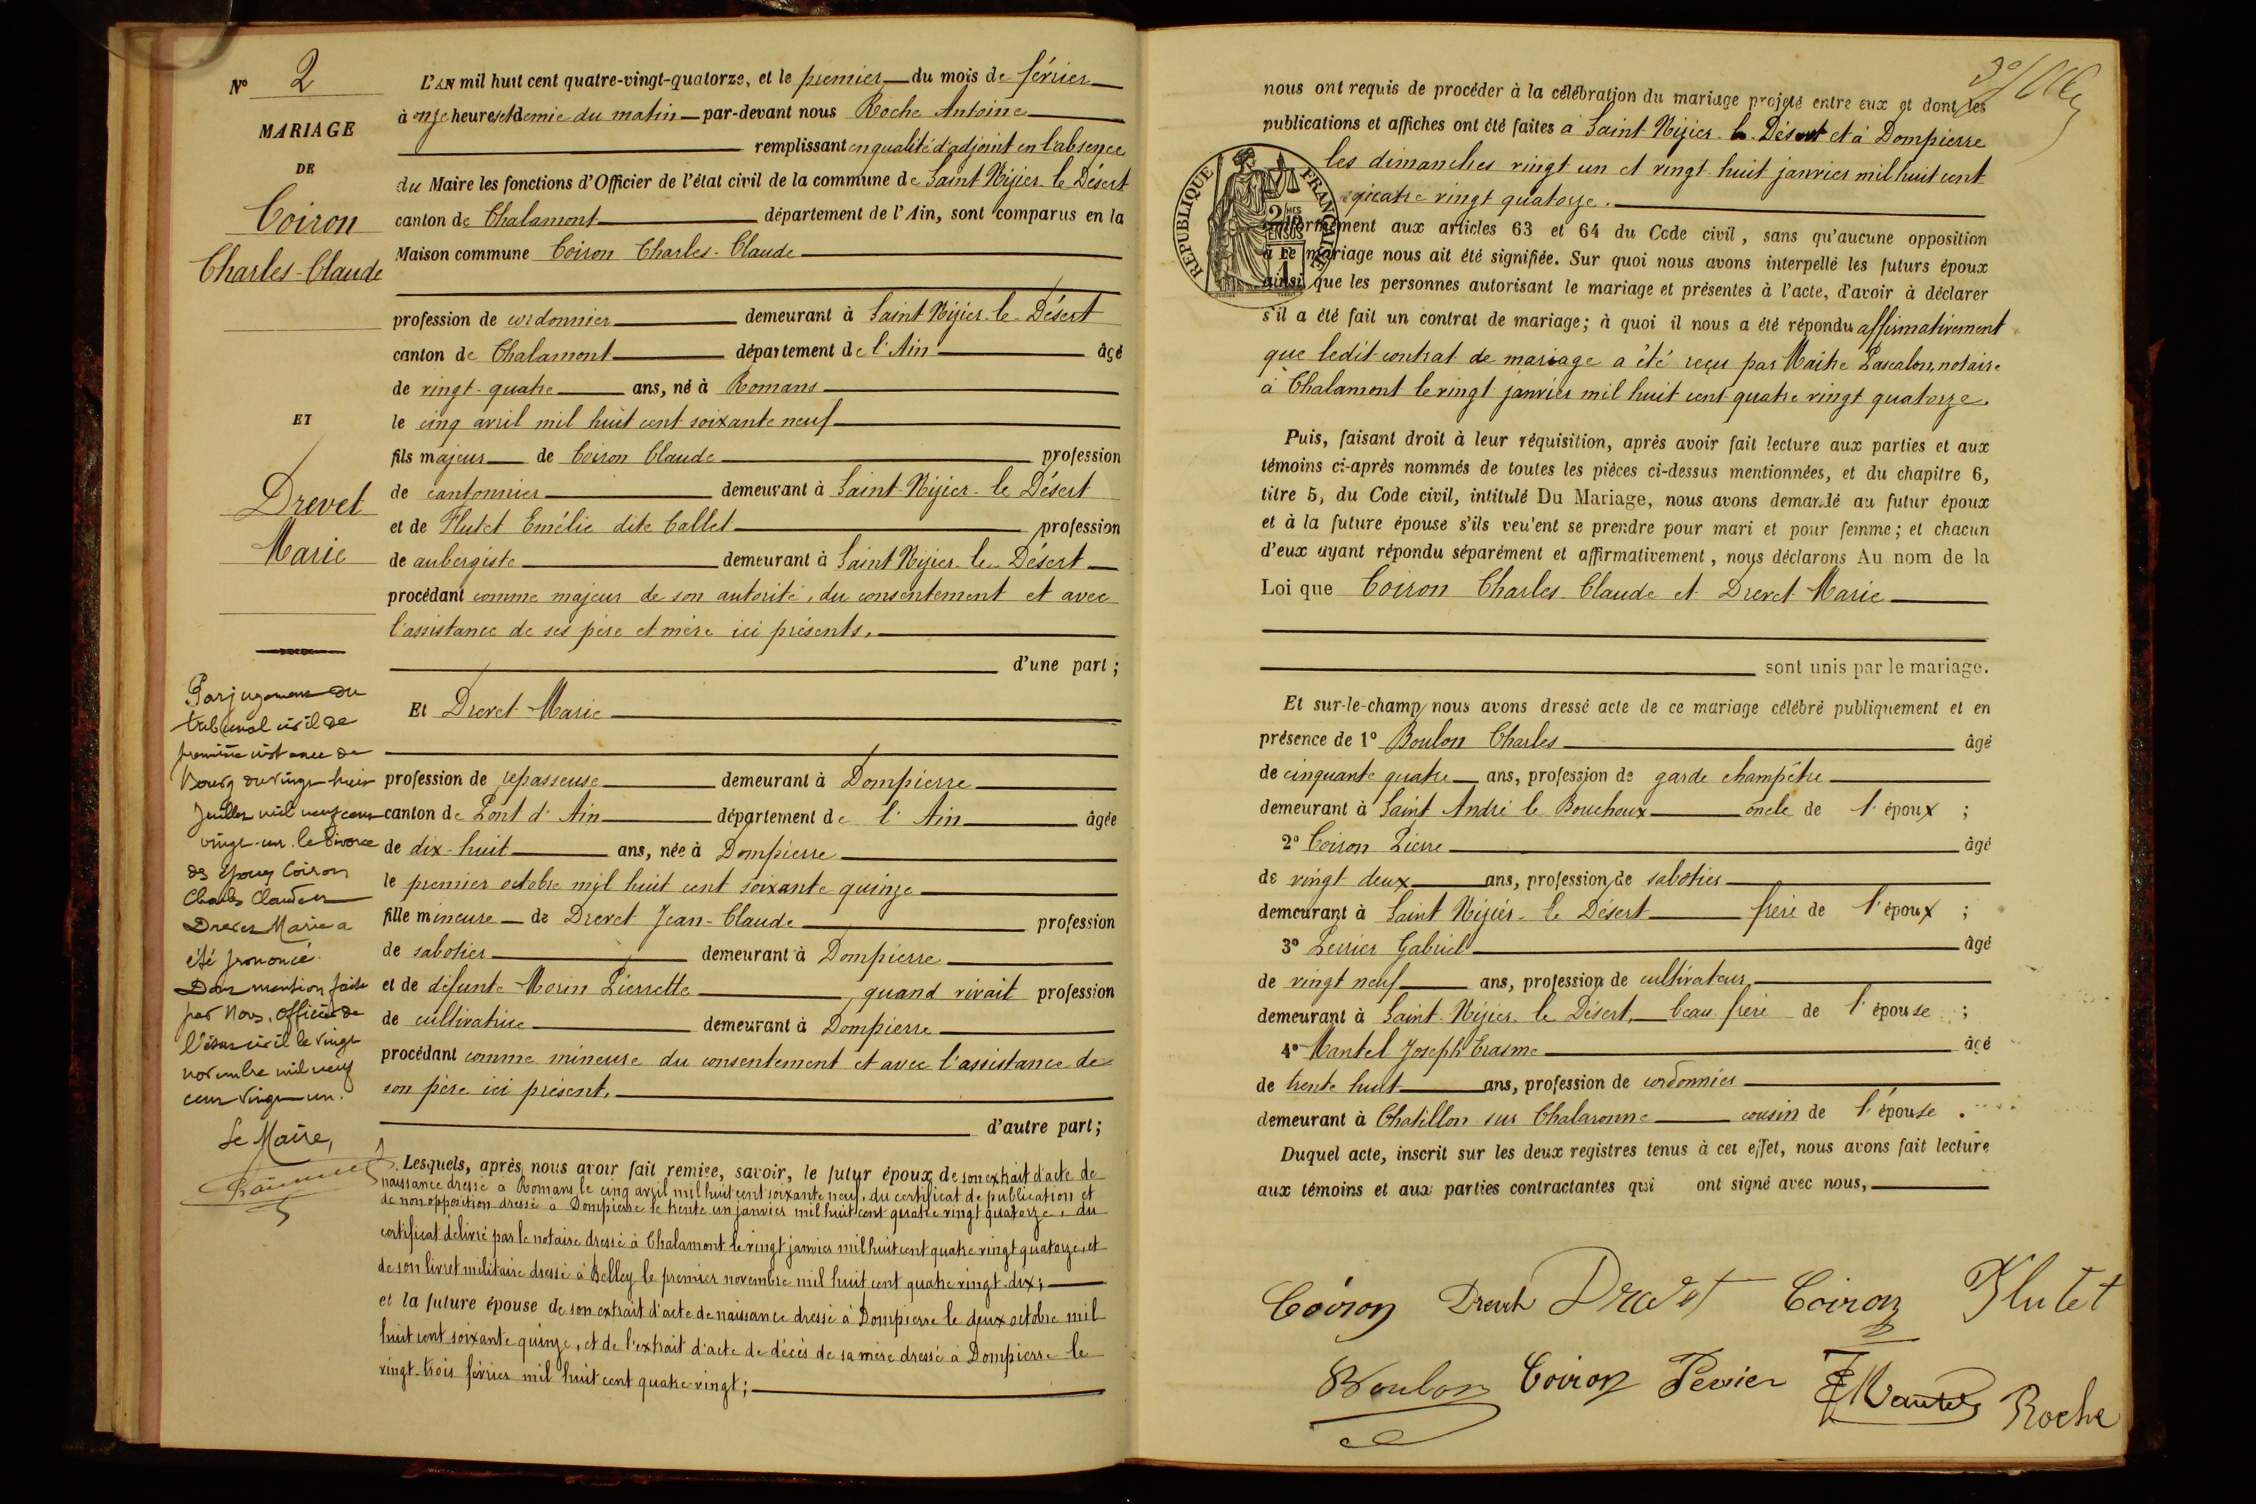 N° 2
MARIAGE
DE
Coiron
Charles-Claude
ET
Drevet
Marie
Par jugement du
tribunal civil de
première instance de
Bourg du vingt huit
Juillet mil neuf cent
vingt-un le divorce
des époux Coiron
Charles Claude et
Drevet Marie a
été prononcé.
Dont mention faite
par Nous, officier de
l'état civil le vingt
novembre mil neuf
cent vingt un.
Le Maire,
L'AN mil huit cent quatre-vingt-quatorze, et le premier du mois de février
à onze heures et demie du matin par-devant nous Roche Antoine
remplissant en qualité d'adjoint en l'absence
du Maire les fonctions d'Officier de l'état civil de la commune de Saint Nizier-le-Désert
canton de Chalamont département de l'Ain, sont comparus en la
Maison commune Coiron Charles-Claude
profession de cordonnier demeurant à Saint Nizier-le-Désert
canton de Chalamont département de l'Ain âgé
de vingt-quatre ans, né à Romans
le cinq avril mil huit cent soixante neuf
fils majeur de Coiron Claude profession
de cantonnier demeurant à Saint-Nizier-le Désert
et de Flutet Emélie dite Callet profession
de aubergiste demeurant à Saint Nizier-le-Désert
procédant comme majeur de son autorité, du consentement et avec
l'assistance de ses père et mère ici présents.
d'une part ;
Et Drevet Marie
profession de repasseuse demeurant à Dompierre
canton de Pont d'Ain département de l'Ain âgée
de dix-huit ans, née à Dompierre
le premier octobre mil huit cent soixante quinze
fille mineure de Drevet Jean-Claude profession
de sabotier demeurant à Dompierre
et de défunte Morin Pierrette, quand vivait profession
de cultivatrice demeurant à Dompierre
procédant comme mineure du consentement et avec l'assistance de
son père ici présent.
d'autre part ;
Lesquels, après nous avoir fait remise, savoir, le futur époux de son extrait d'acte de
naissance dressé à Romans le cinq avril mil huit cent soixante neuf, du certificat de publication et
de non opposition dressé à Dompierre le trente un janvier mil huit cent quatre vingt quatorze, du
certificat délivré par le notaire dressé à Chalamont le vingt janvier mil huit cent quatre vingt quatorze, et
de son livret militaire dressé à Belley le premier novembre mil huit cent quatre vingt-dix;
et la future épouse de son extrait d'acte de naissance dressé à Dompierre le deux octobre mil
huit cent soixante quinze, et de l'extrait d'acte de décès de sa mère dressé à Dompierre le
vingt-trois février mil huit cent quatre-vingt;
nous ont requis de procéder à la célébration du mariage projeté entre eux et dont les
publications et affiches ont été faites à Saint-Nizier-le-Désert et à Dompierre
les dimanches vingt un et vingt-huit janvier mil huit cent
quatre vingt quatorze.
conformément aux articles 63 et 64 du Code civil, sans qu'aucune opposition
à ce mariage nous ait été signifiée. Sur quoi nous avons interpellé les futurs époux
ainsi que les personnes autorisant le mariage et présentes à l'acte, d'avoir à déclarer
s'il a été fait un contrat de mariage; à quoi il nous a été répondu affirmativement
que ledit contrat de mariage a été reçu par Maître Pascalon, notaire
à Chalamont le vingt janvier mil huit cent quatre vingt quatorze.
RÉPUBLIQUE FRANÇAISE
Puis, faisant droit à leur réquisition, après avoir fait lecture aux parties et aux
témoins ci-après nommés de toutes les pièces ci-dessus mentionnées, et du chapitre 6,
titre 5, du Code civil, intitulé Du Mariage, nous avons demandé au futur époux
et à la future épouse s'ils veulent se prendre pour mari et pour femme; et chacun
d'eux ayant répondu séparément et affirmativement, nous déclarons Au nom de la
Loi que Coiron Charles Claude et Drevet Marie
sont unis par le mariage.
Et sur-le-champ nous avons dressé acte de ce mariage célébré publiquement et en
présence de 1° Boulon Charles âgé
de cinquante quatre ans, profession de garde champêtre
demeurant à Saint André le Bouchoux oncle de l'époux ;
2° Coiron Pierre âgé
de vingt deux ans, profession de sabotier
demeurant à Saint Nizier-le Désert frère de l'époux ;
3° Perrier Gabriel âgé
de vingt neuf ans, profession de cultivateur
demeurant à Saint-Nizier-le Désert, beau frère de l'épouse ;
4° Mantel Joseph Erasme âgé
de trente huit ans, profession de cordonnier
demeurant à Chatillon sur Chalaronne cousin de l'épouse.
Duquel acte, inscrit sur les deux registres tenus à cet effet, nous avons fait lecture
aux témoins et aux parties contractantes qui ont signé avec nous,
Coiron Drevet Drevet Coiron Flutet
Boulon Coiron Perier Mantel Roche